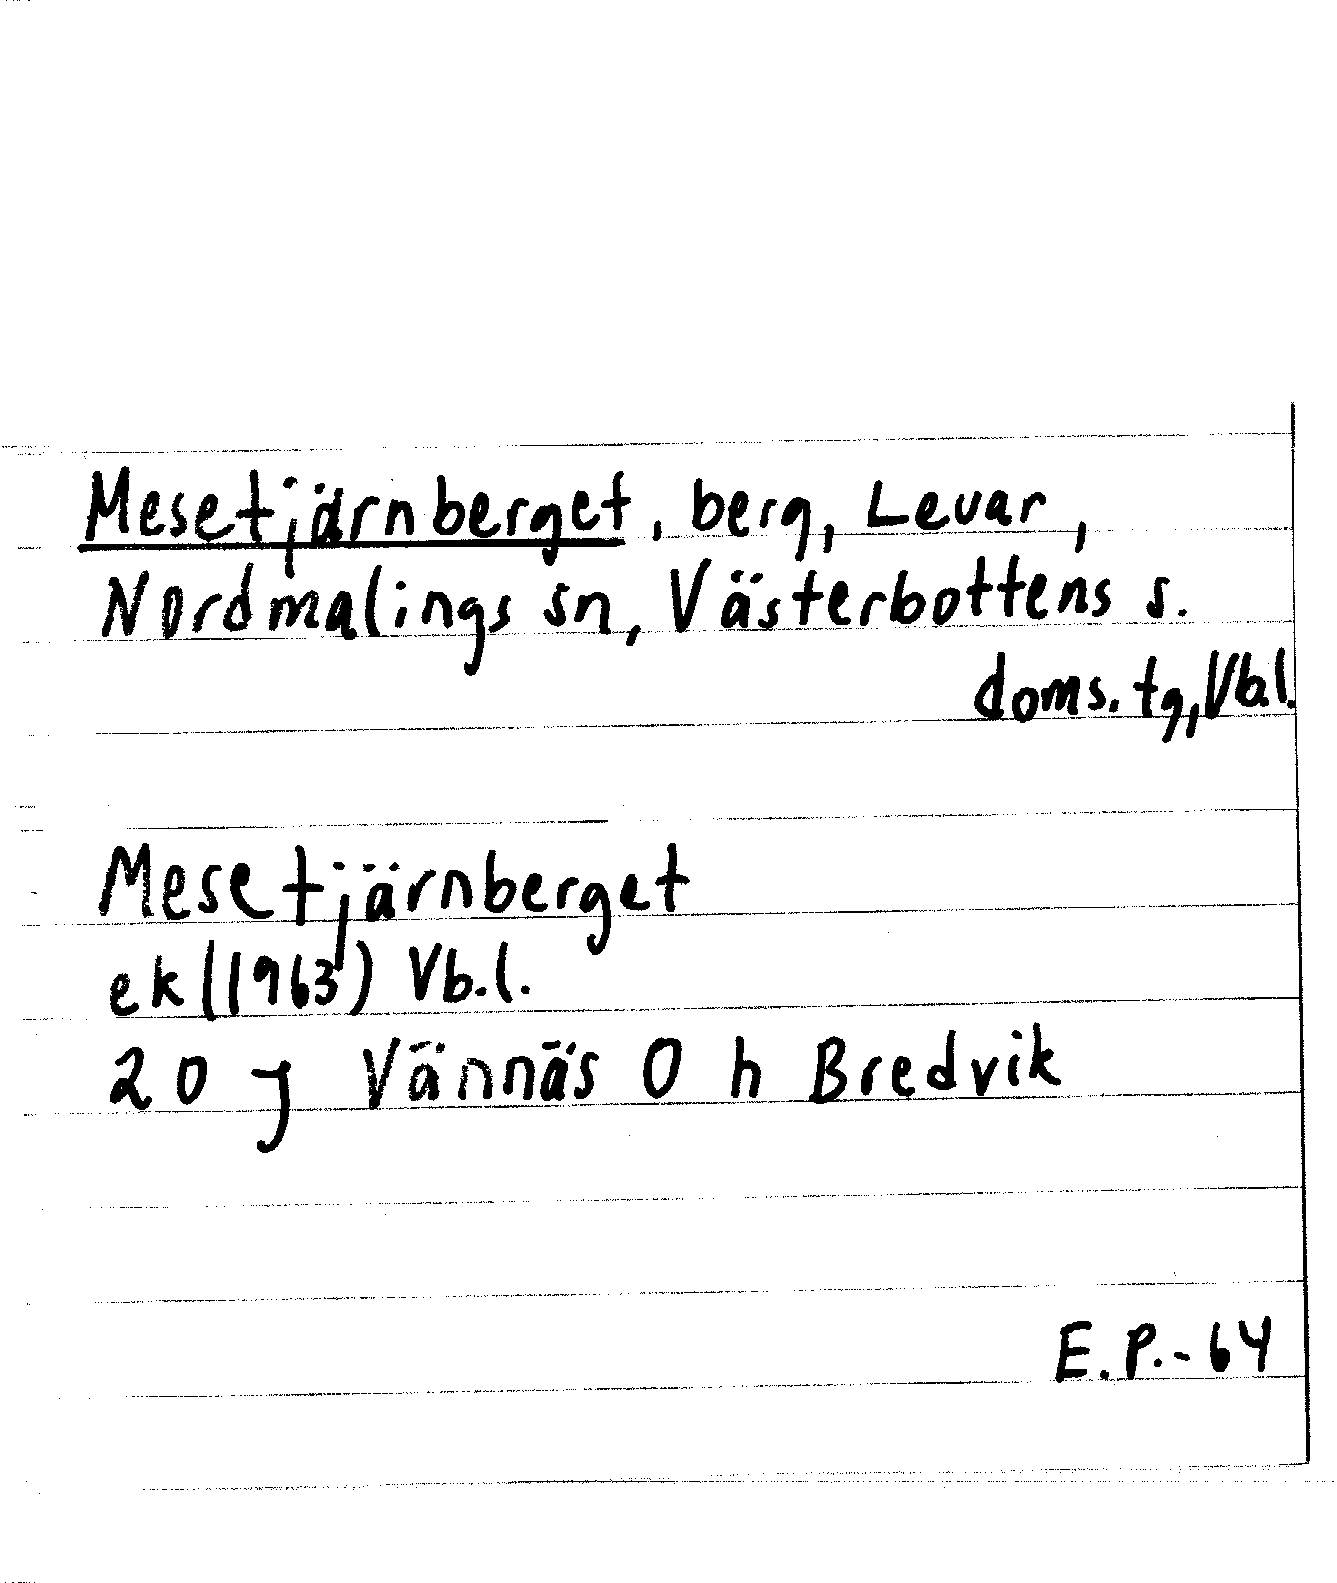 Mesetjärnberget, berg, Levar,
Nordmalings sn, Västerbottens s.
doms. tg, Vb.l.
Mesetjärnberget
ek (1963) Vb.l.
20 J Vännäs O h Bredvik
E.P.-64